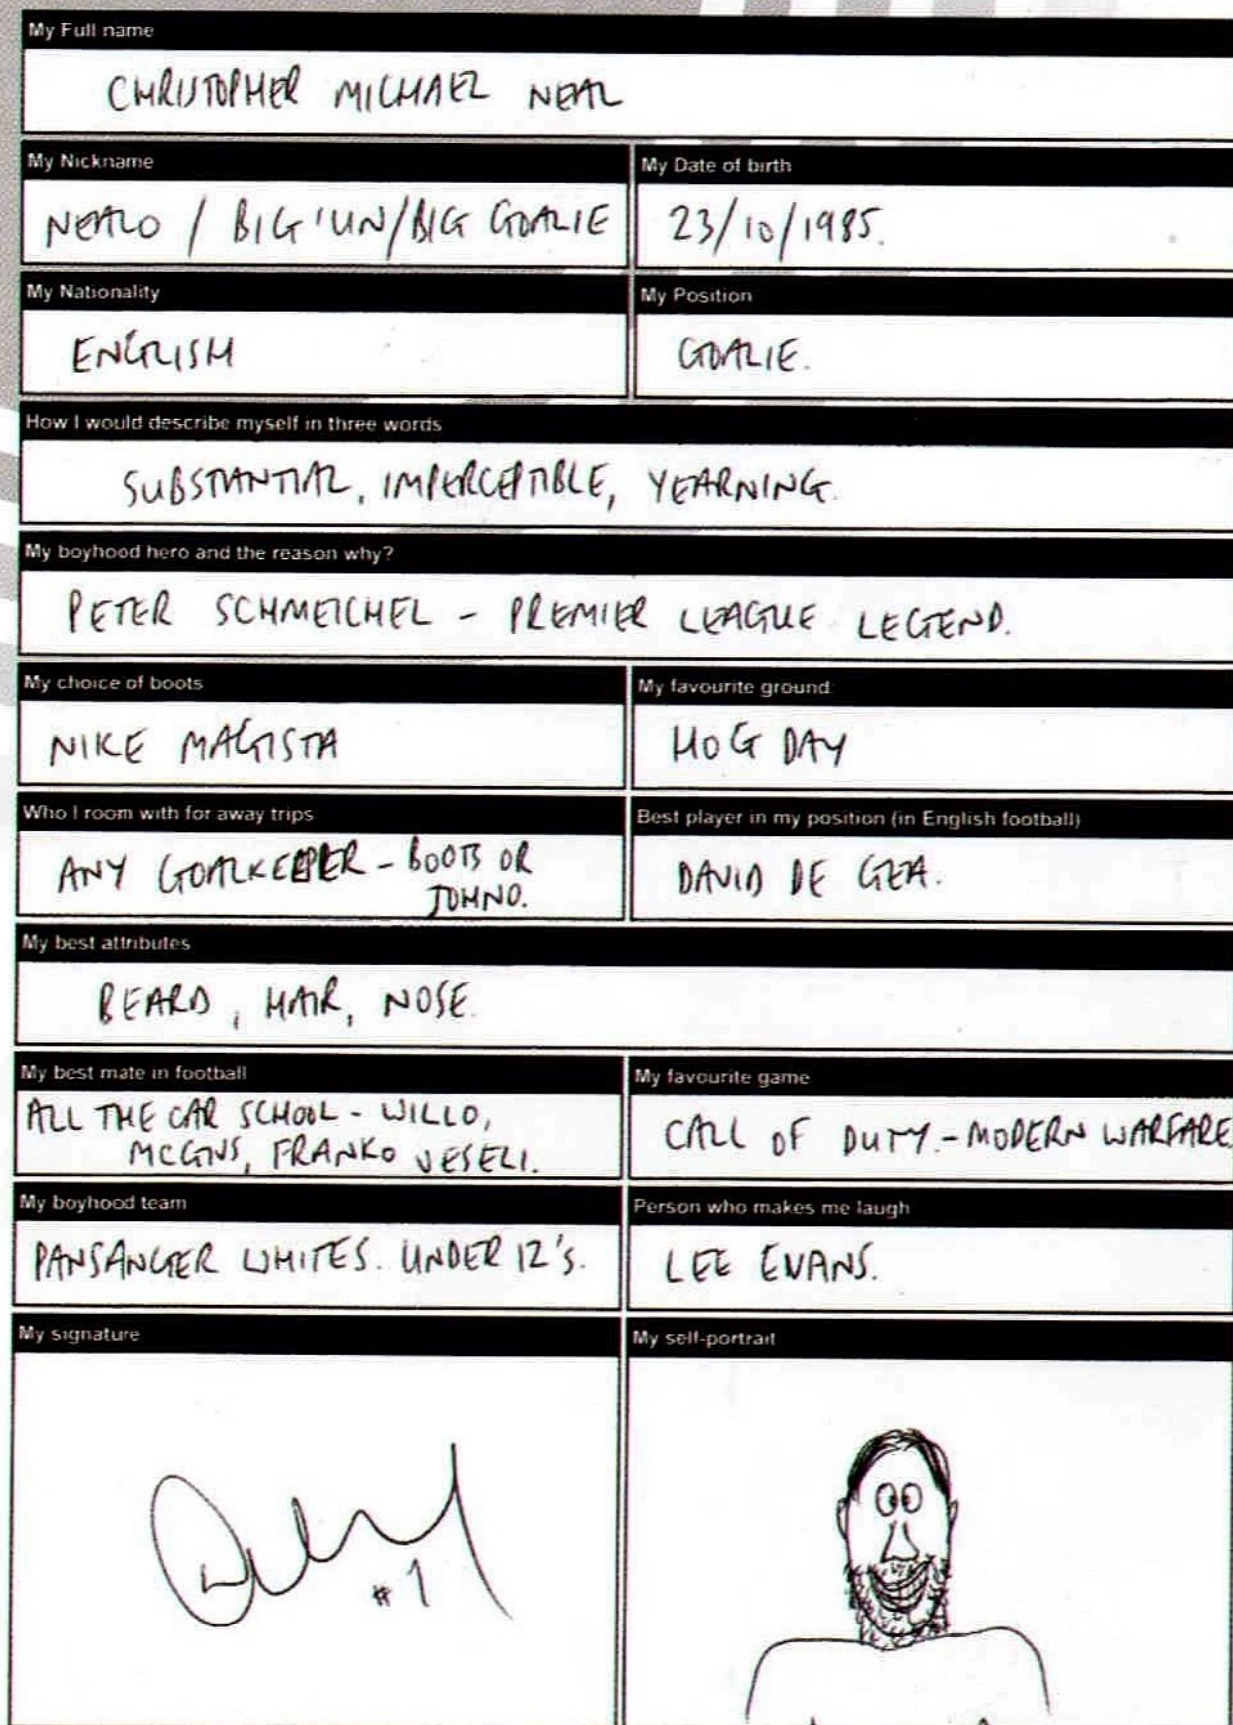 My Full name
CHRISTOPHER MICHAEL NEAL
My Nickname
NEALO / BIG 'UN/BIG GOALIE
My Date of birth
23/10/1985.
My Nationality
ENGLISH
My Position
GOALIE.
How I would describe myself in three words
SUBSTANTIAL, IMPERCEPTIBLE, YEARNING.
My boyhood hero and the reason why?
PETER SCHMEICHEL - PREMIER LEAGUE LEGEND.
My choice of boots
NIKE MAGISTA
My favourite ground
HOG DAY
Who I room with for away trips
ANY GOALKEEPER - BOOTS OR
JOHNO.
Best player in my position (in English football)
DAVID DE GEA.
My best attributes
BEARD, HAIR, NOSE.
My best mate in football
ALL THE CAR SCHOOL - WILLO,
MCGIVS, FRANKO VESELI.
My favourite game
CALL OF DUTY. - MODERN WARFARE
My boyhood team
PANSANGER WHITES. UNDER 12's.
Person who makes me laugh
LEE EVANS.
My signature
#1
My self-portrait